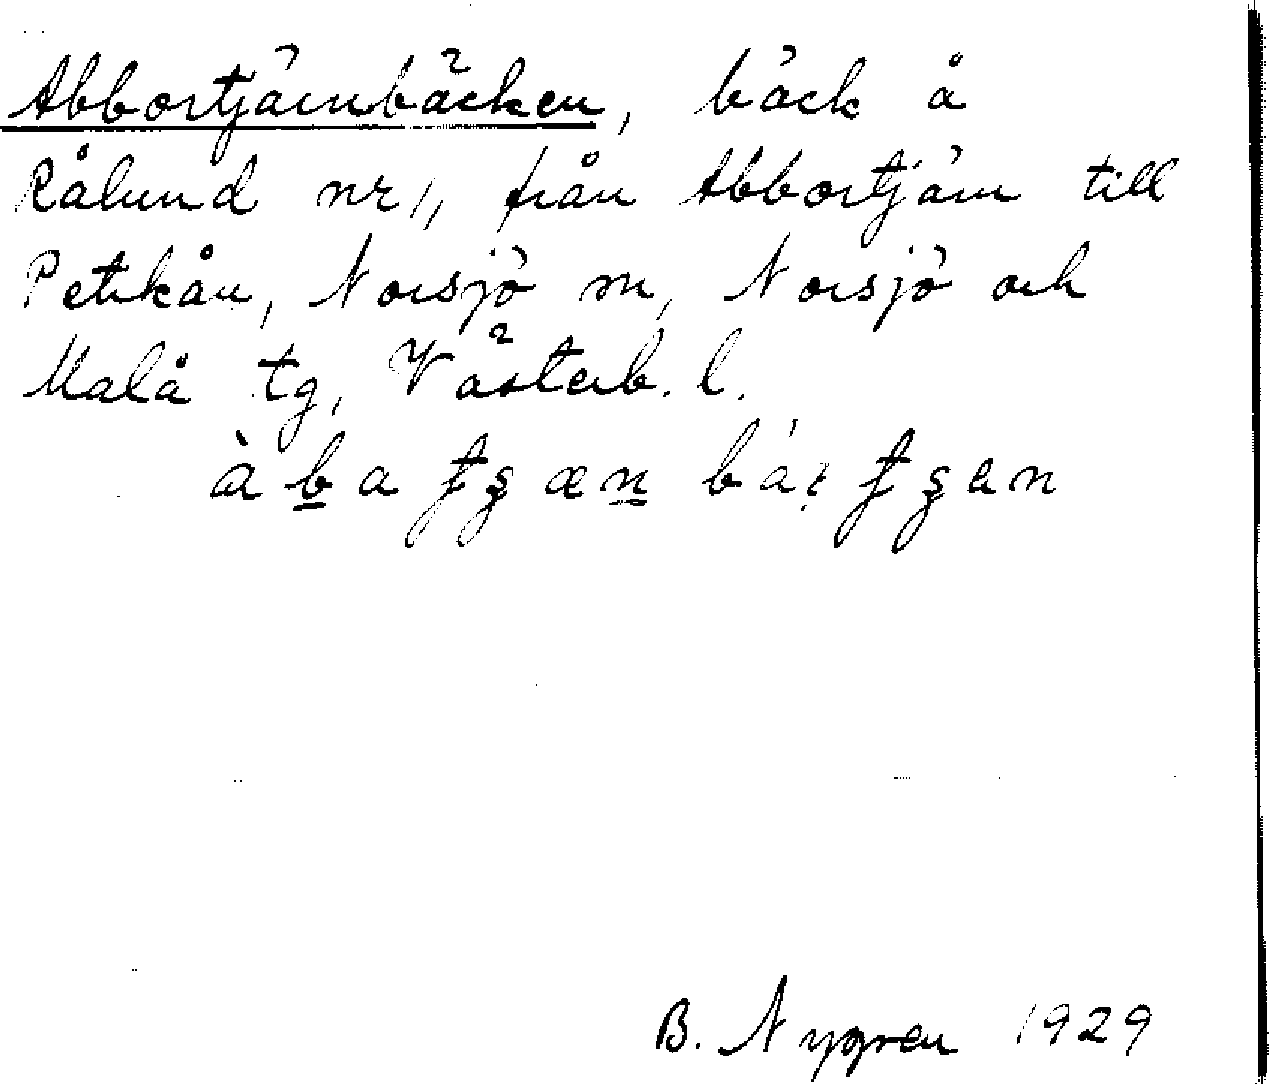 Abbortjärnbäcken, bäck å
Rålund nr 1, från Abbortjärn till
Petikån, Norsjö sn, Norsjö och
Malå tg, Västerb. l.
B. Nygren 1929